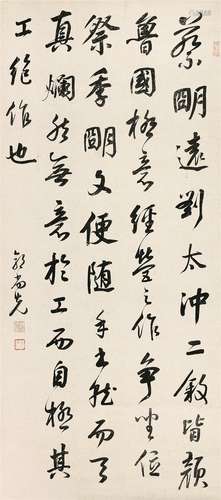 蔡明遠劉太冲二敘皆顏
魯國極意經營之作爭坐位
祭季明文便隨手書就而天
真爛然無意於工而自極其
工絕作也
郭尚先